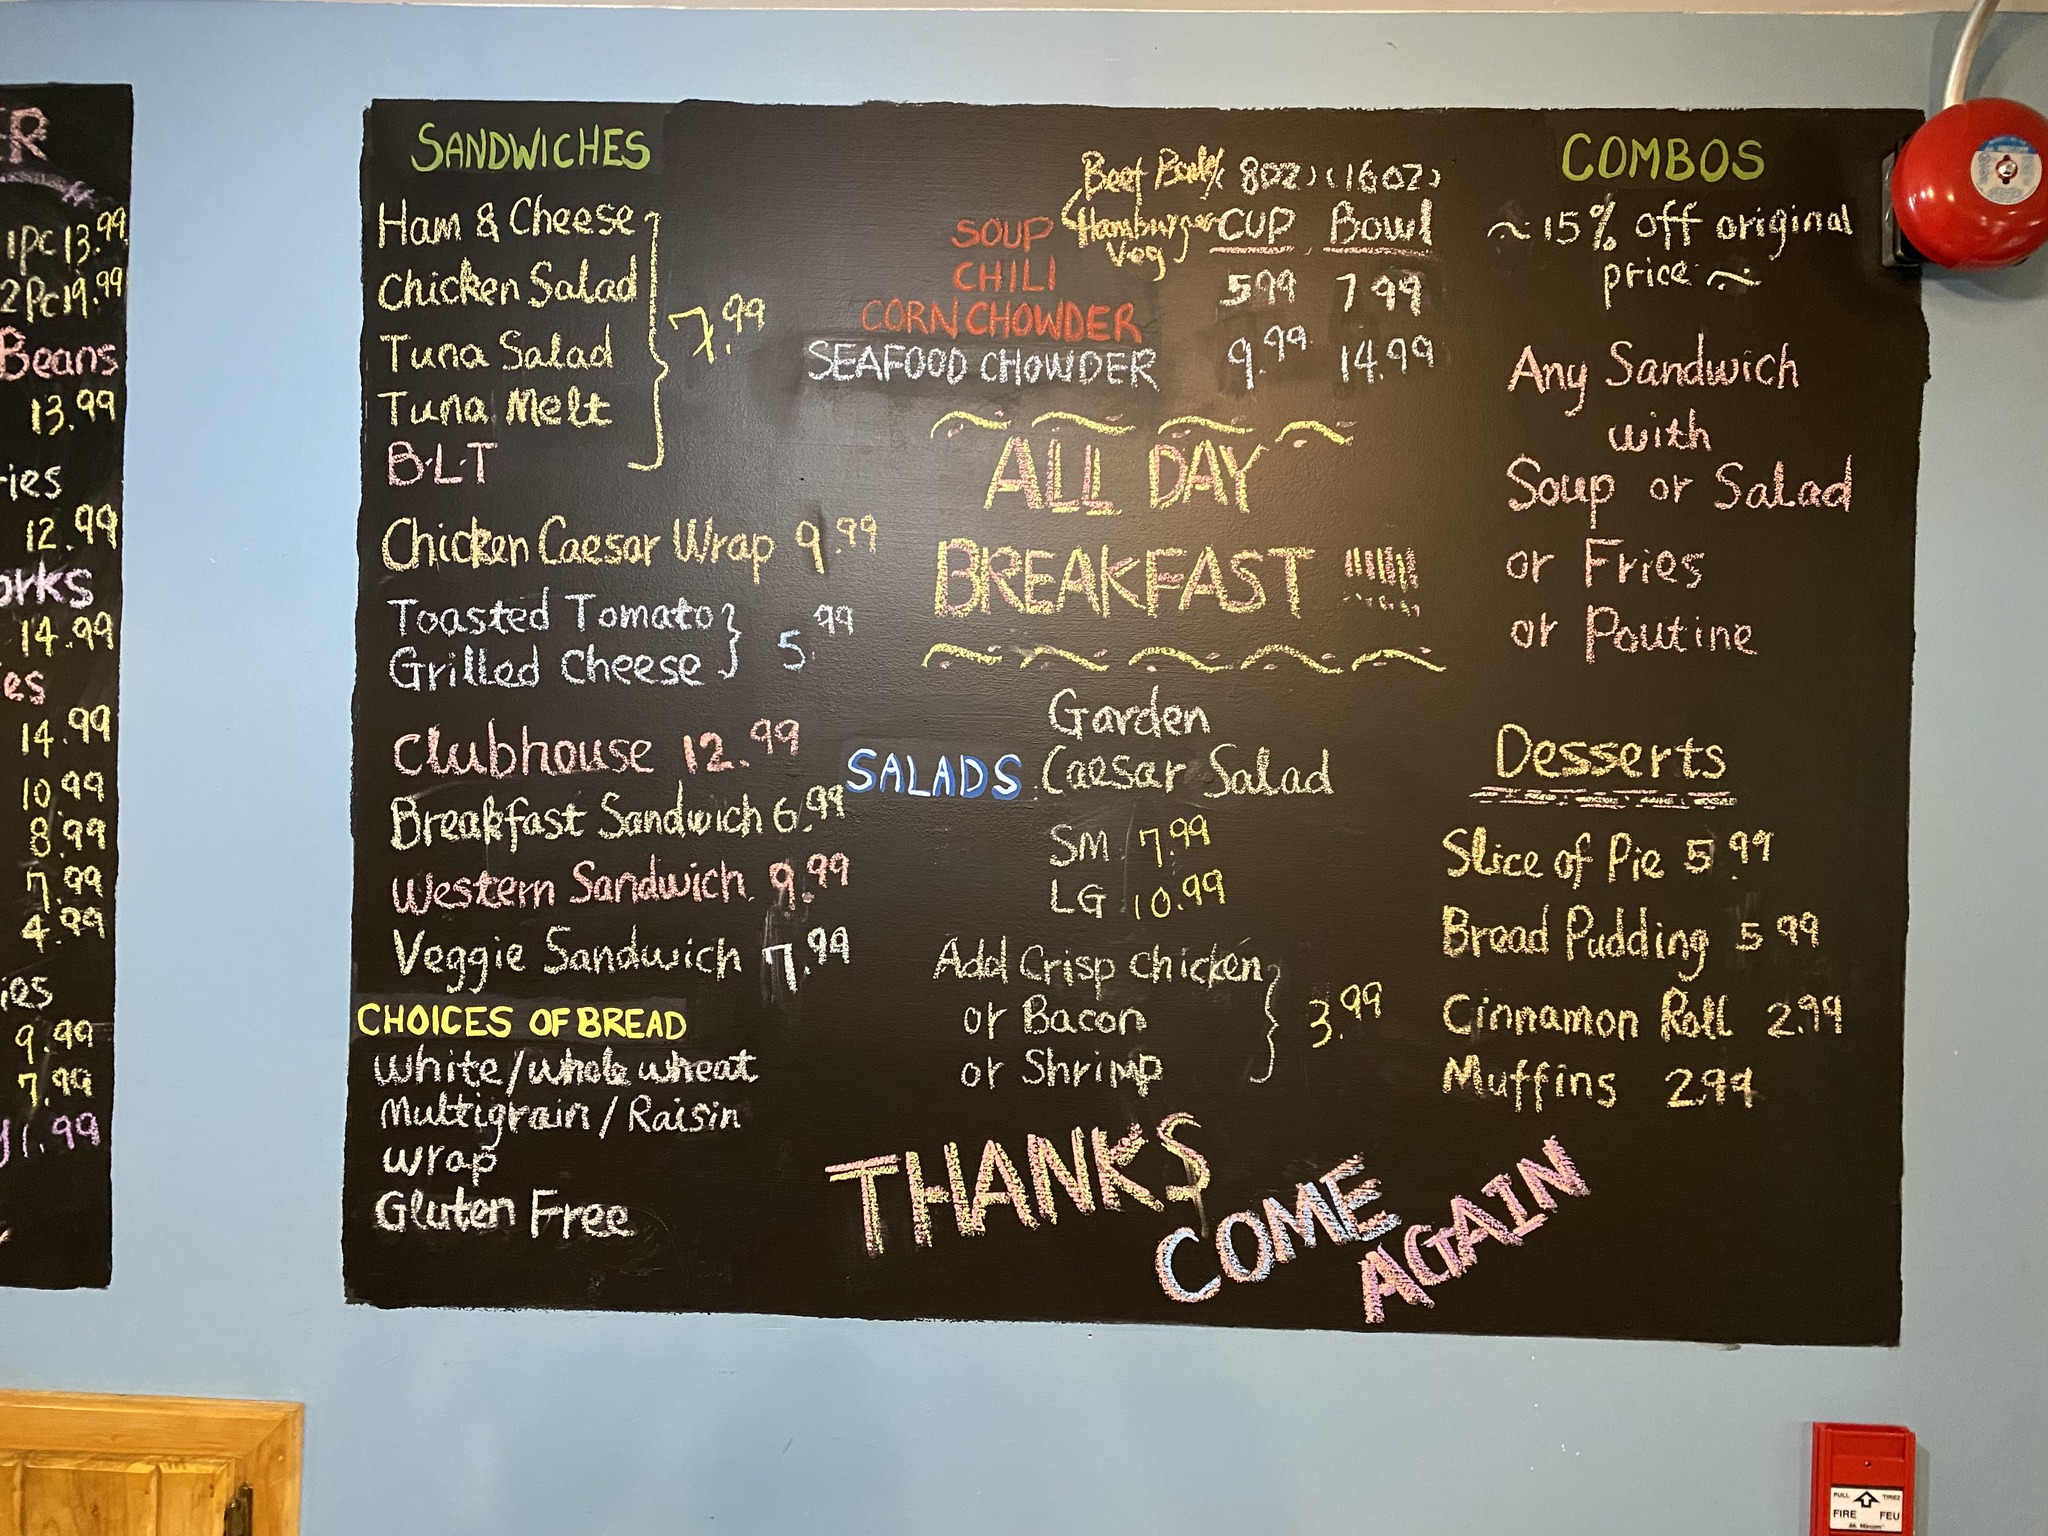 ER
1pc 13.99
2Pc 19.99
Beans
13.99
ries
12.99
orks
14.99
es
14.99
10.99
8.99
7.99
4.99
ies
9.99
7.99
1.99
SANDWICHES
Ham & Cheese
Chicken Salad
Tuna Salad
Tuna Melt
B.L.T
7.99
Chicken Caesar Wrap 9.99
Toasted Tomato
Grilled Cheese
5.99
Clubhouse 12.99
Breakfast Sandwich 6.99
Western Sandwich 9.99
Veggie Sandwich 7.99
CHOICES OF BREAD
White/whole wheat
Multigrain / Raisin
Wrap
Gluten Free
Beef (8oz) (16oz)
Hamburger CUP Bowl
Veg
SOUP
CHILI
5.99 7.99
CORN CHOWDER
SEAFOOD CHOWDER 9.99 14.99
ALL DAY
BREAKFAST !!!!!!
SALADS
Garden
Caesar Salad
SM 7.99
LG 10.99
Add Crisp chicken
or Bacon
or Shrimp
3.99
THANKS
COME
AGAIN
COMBOS
~15% off original
price~
Any Sandwich
with
Soup or Salad
or Fries
or Poutine
Desserts
Slice of Pie 5.99
Bread Pudding 5.99
Cinnamon Roll 2.99
Muffins 2.99
PULL TIREZ
FIRE FEU